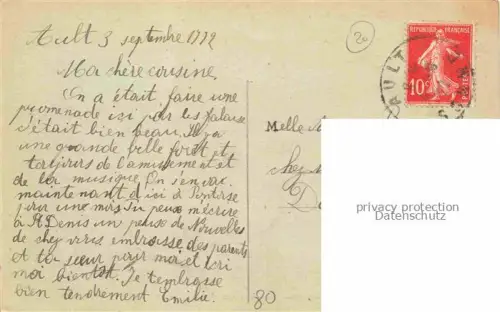 Ault 3 septembre 1912
Ma chère cousine,
On a était faire une
promenade ici par les falaise
s'était bien beau. Il y a
une grande belle forêt et
toujours de l'amusement et
de la musique On s'en vax
maintenant d'ici à
pour une mois tu peux m'écrire
à St Denis un peuse de Nouvelles
de chez vous imbrasse des parents
et ta sœur pour moi et écri
moi bientôt. Je t'embrasse
bien tendrement Emilie.
20
80
Melle
chez
REPUBLIQUE FRANÇAISE
10c
POSTES
AULT
privacy protection
Datenschutz